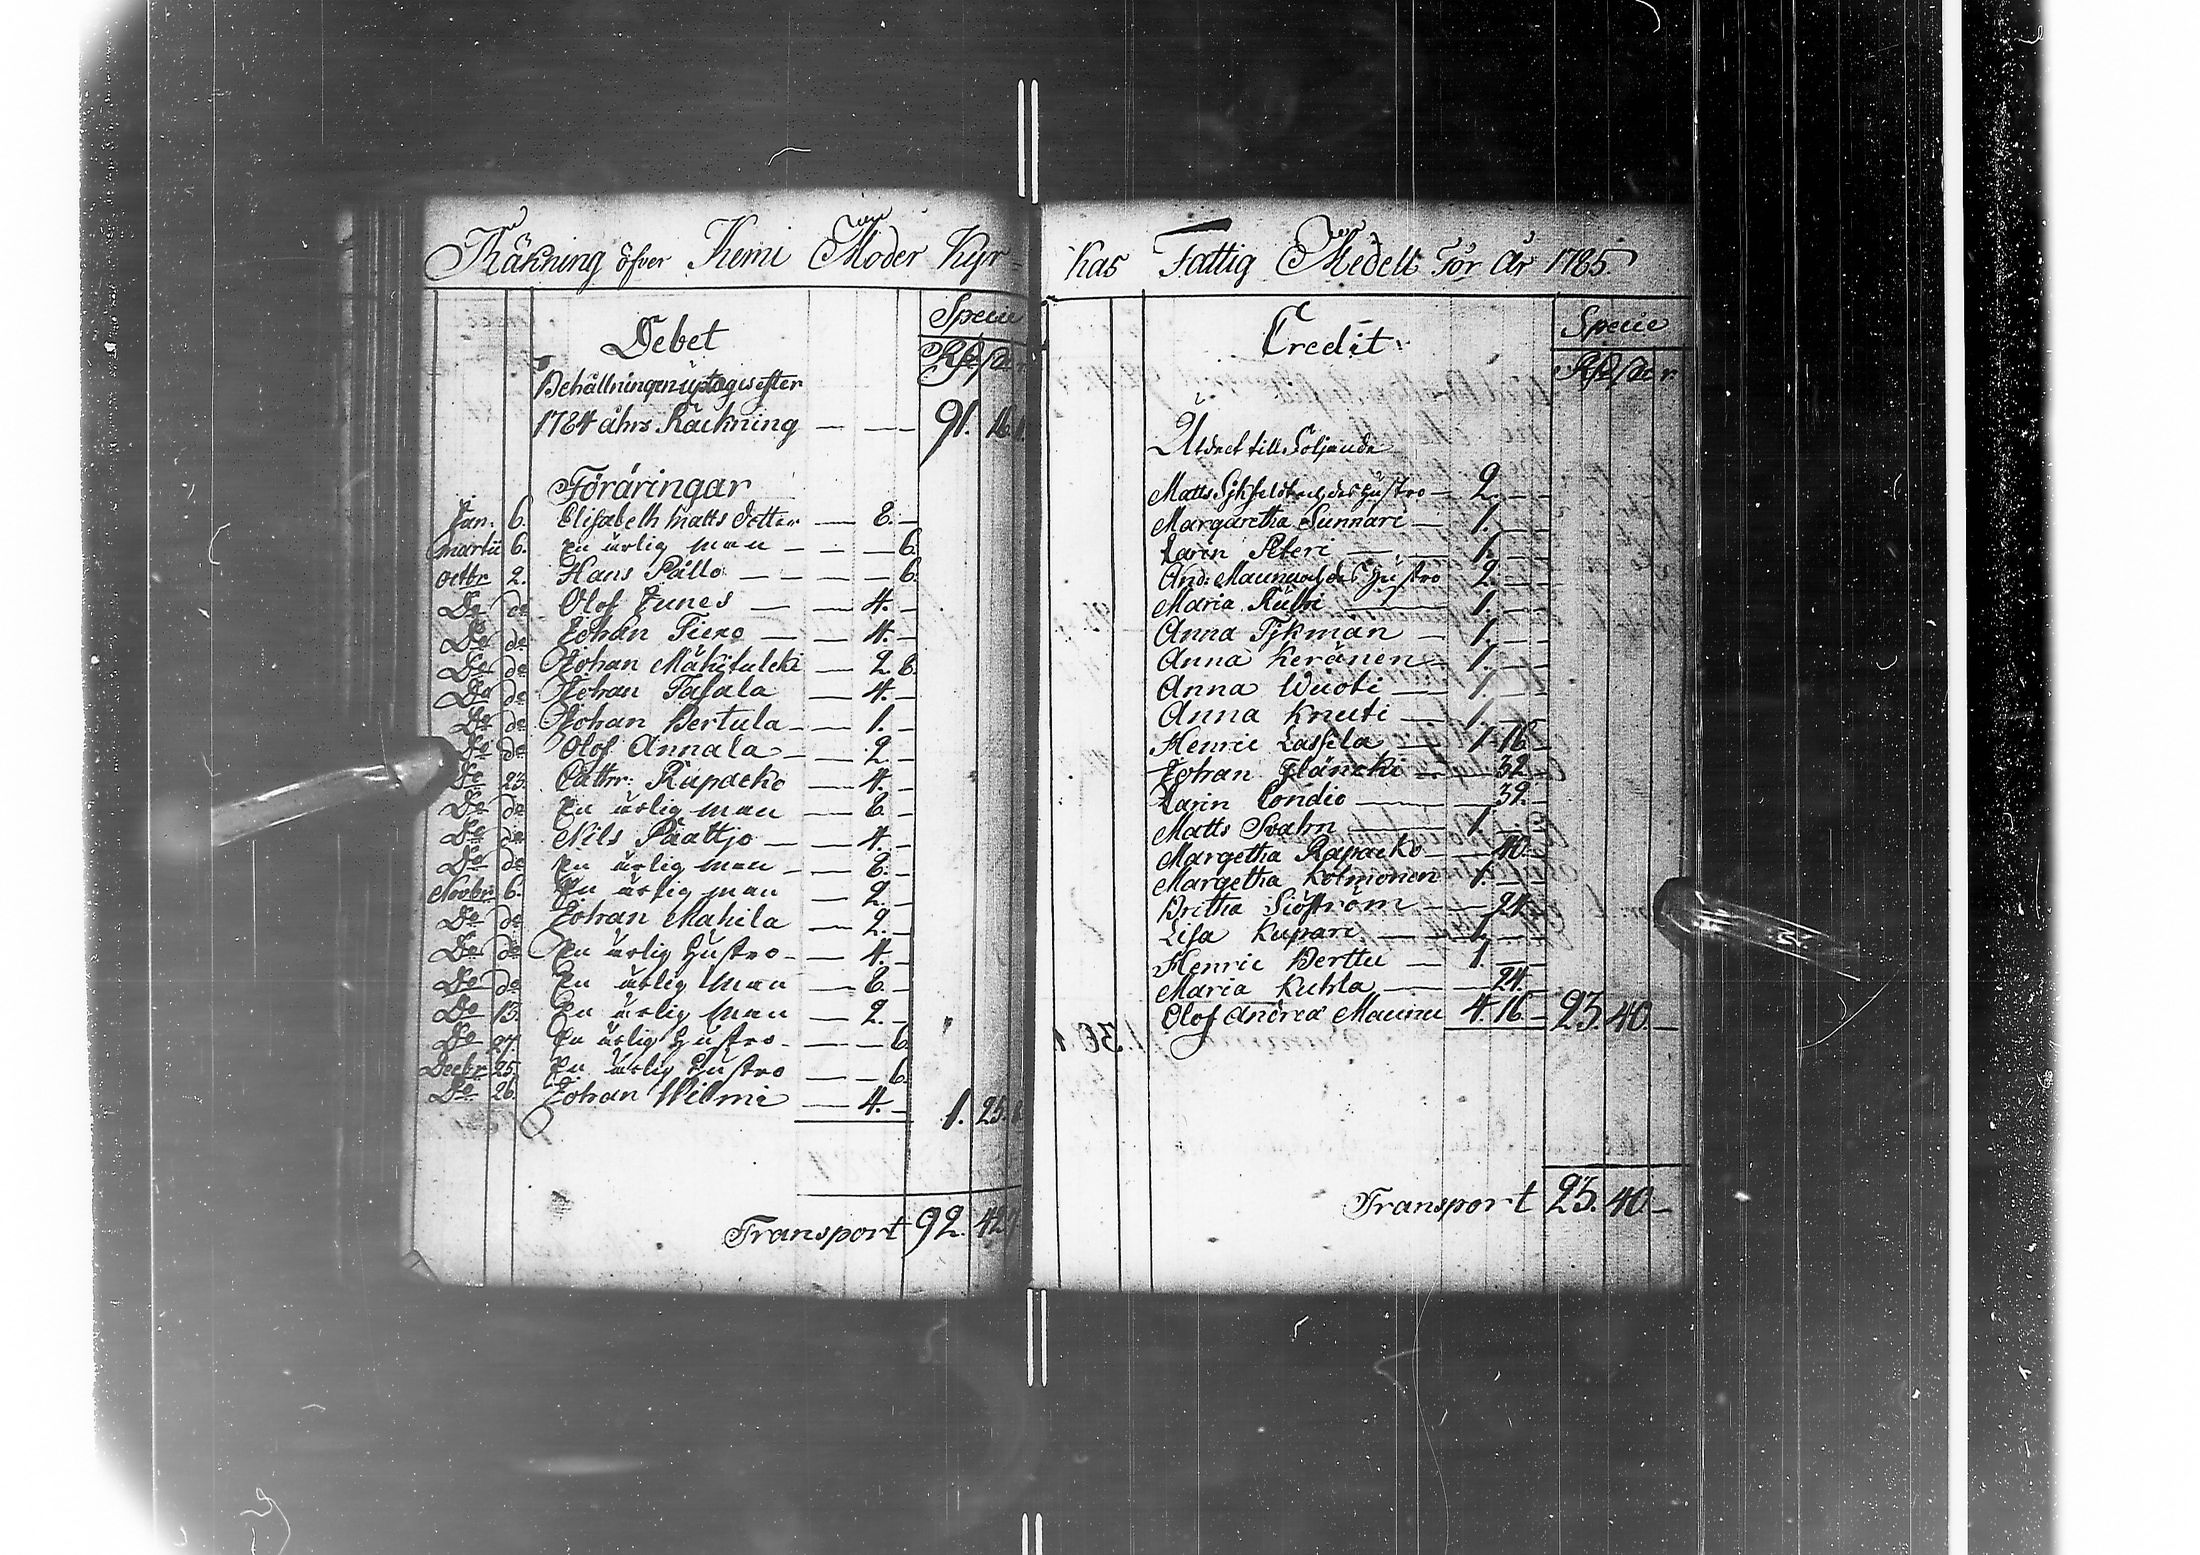 Räkning öfver Kemi Moder Kyr-
Debet
Specie
Behållningen uptages efter
1784 åhrs Räckning — — 91. 16.
Föräringar
Jan: 6. Elisabeth Matts dotter — 8. –
Martii 6. En ärlig man – – — 6.
octbr 2. Hans Pållo – – – – 6.
Do do Olof Junes — — 4. –
Do do Johan Tiero — — 4. –
Do do Johan Mäkitulcki — 2. 8.
Do do Johan Tafala — 4. –
Do do Johan Bertula — 1. –
Do do Olof Annala — — 2. –
Do 23. Cathr: Rapacko — 4. –
Do do En ärlig man — 8. –
Do do Nils Påattjo — — 4. –
Do do En ärlig man – — 8. –
Novbr 6. En ärlig man — 2. –
Do do Johan Mahila — 2. –
Do do En ärlig Hustro – — 4. –
Do do En ärlig man — 8. –
Do 13. En ärlig man — 2. –
Do 27. En ärlig Hustro – — — 6.
Decbr 25. En ärlig Hustro — — 6.
Do 26. Johan Wilmi — 4. – 1. 25.
Transport 92. 42.
kas Fattig Medell För År 1785
Credit
Specie
Utdelt till Följande
Matts hustro — 2. – –
Margaretha Sunnari — 1. – –
Karin Peteri — — 1. – –
And: Maunu och des Hustro 2. – –
Maria — 1. – –
Anna Tikman — 1. – –
Anna Keränen — 1. – –
Anna Wuoti — 1. – –
Anna Knuti — 1. – –
Henric Lassila — 1. 16. –
Johan — 32. –
Karin Pondio — — 32. –
Matts Svahn — 1. – –
Margetha Rapacko — 40. –
Margetha Kolmonen 1. – –
Britha Siöström — — 24. –
Lisa Kupari — 1. – –
Henric Perttu — 1. – –
Maria Kuhla — — 24. –
Olof Andrea Maunu 4. 16. – 23. 40. –
Transport 23. 40. –